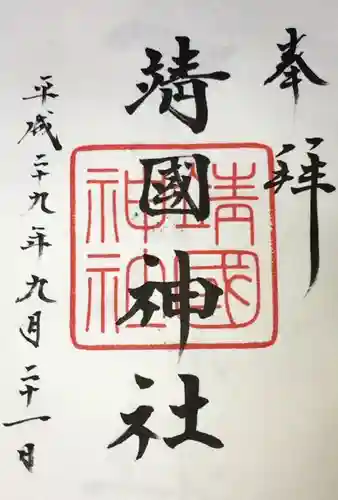 奉拝
靖國神社
靖國神社
平成二十九年九月二十一日